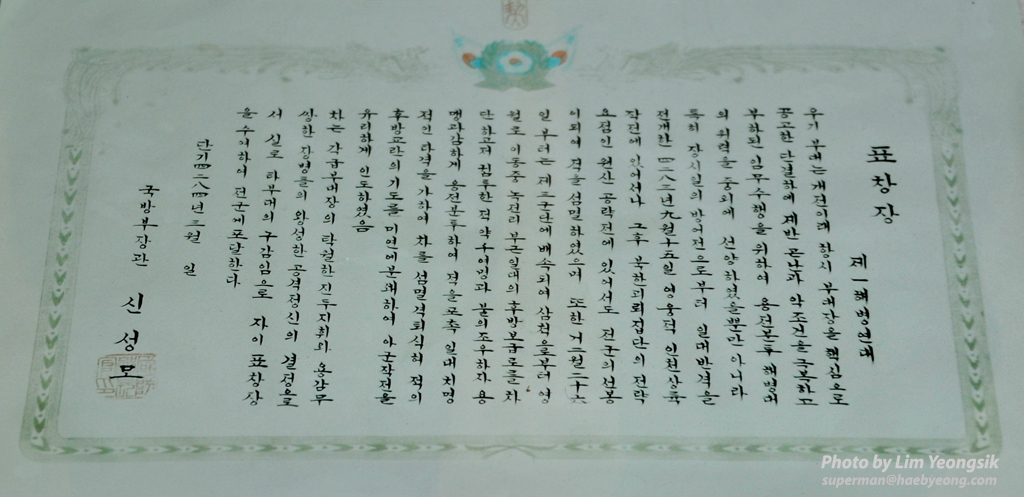 표창장
제一해병연대
우기 부대는 개전이래 항시 부대장을 핵심으로
공고한 단결하에 제반 곤난과 악조건을 극복하고
부하된 임무수행을 위하여 용전분투 해병대
의 위력을 중외에 선양하였을뿐만 아니라
특히 장시일의 방어전으로부터 일대반격을
전개한 四二八三년九월十五일 영용적 인천상륙
작전에 있어서나 그후 북한괴뢰집단의 전략
요점인 원산 공략전에 있어서도 전군의 선봉
이 되여 적을 섬멸하였으며 또한 거二월二十六
일 부터는 제三군단에 배속되여 삼척으로부터 영
월로 이동중 녹전리 부근일대의 후방보급로를 차
단하고저 침투한 적 약 千여명과 불의조우하자 용
맹과감하게 용전분투하여 적을 포촉 일대치명
적인 타격을 가하여 차를 섬멸격퇴식혀 적의
후방교란의 기도를 미연에 분쇄하여 아군작전을
유리하게 인도하였음
차는 각급부대장의 탁월한 진두지휘와 용감무
쌍한 장병들의 왕성한 공격정신의 결정으로
서 실로 타부대의 구감임으로 자이 표창장
을 수여하여 전군에 포달한다
단기四二八四년 三월 일
국방부장관 신성모
Photo by Lim Yeongsik
superman@haebyeong.com